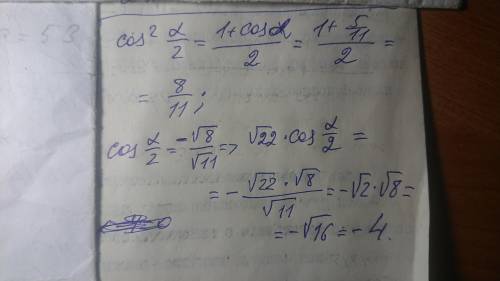 cos² α/2 = (1+cosα)/2 = (1+5/11)/2 =
= 8/11;
cos α/2 = -√8/√11 => √22 · cos α/2 =
= - (√22 · √8)/√11 = -√2 · √8 =
= -√16 = -4.